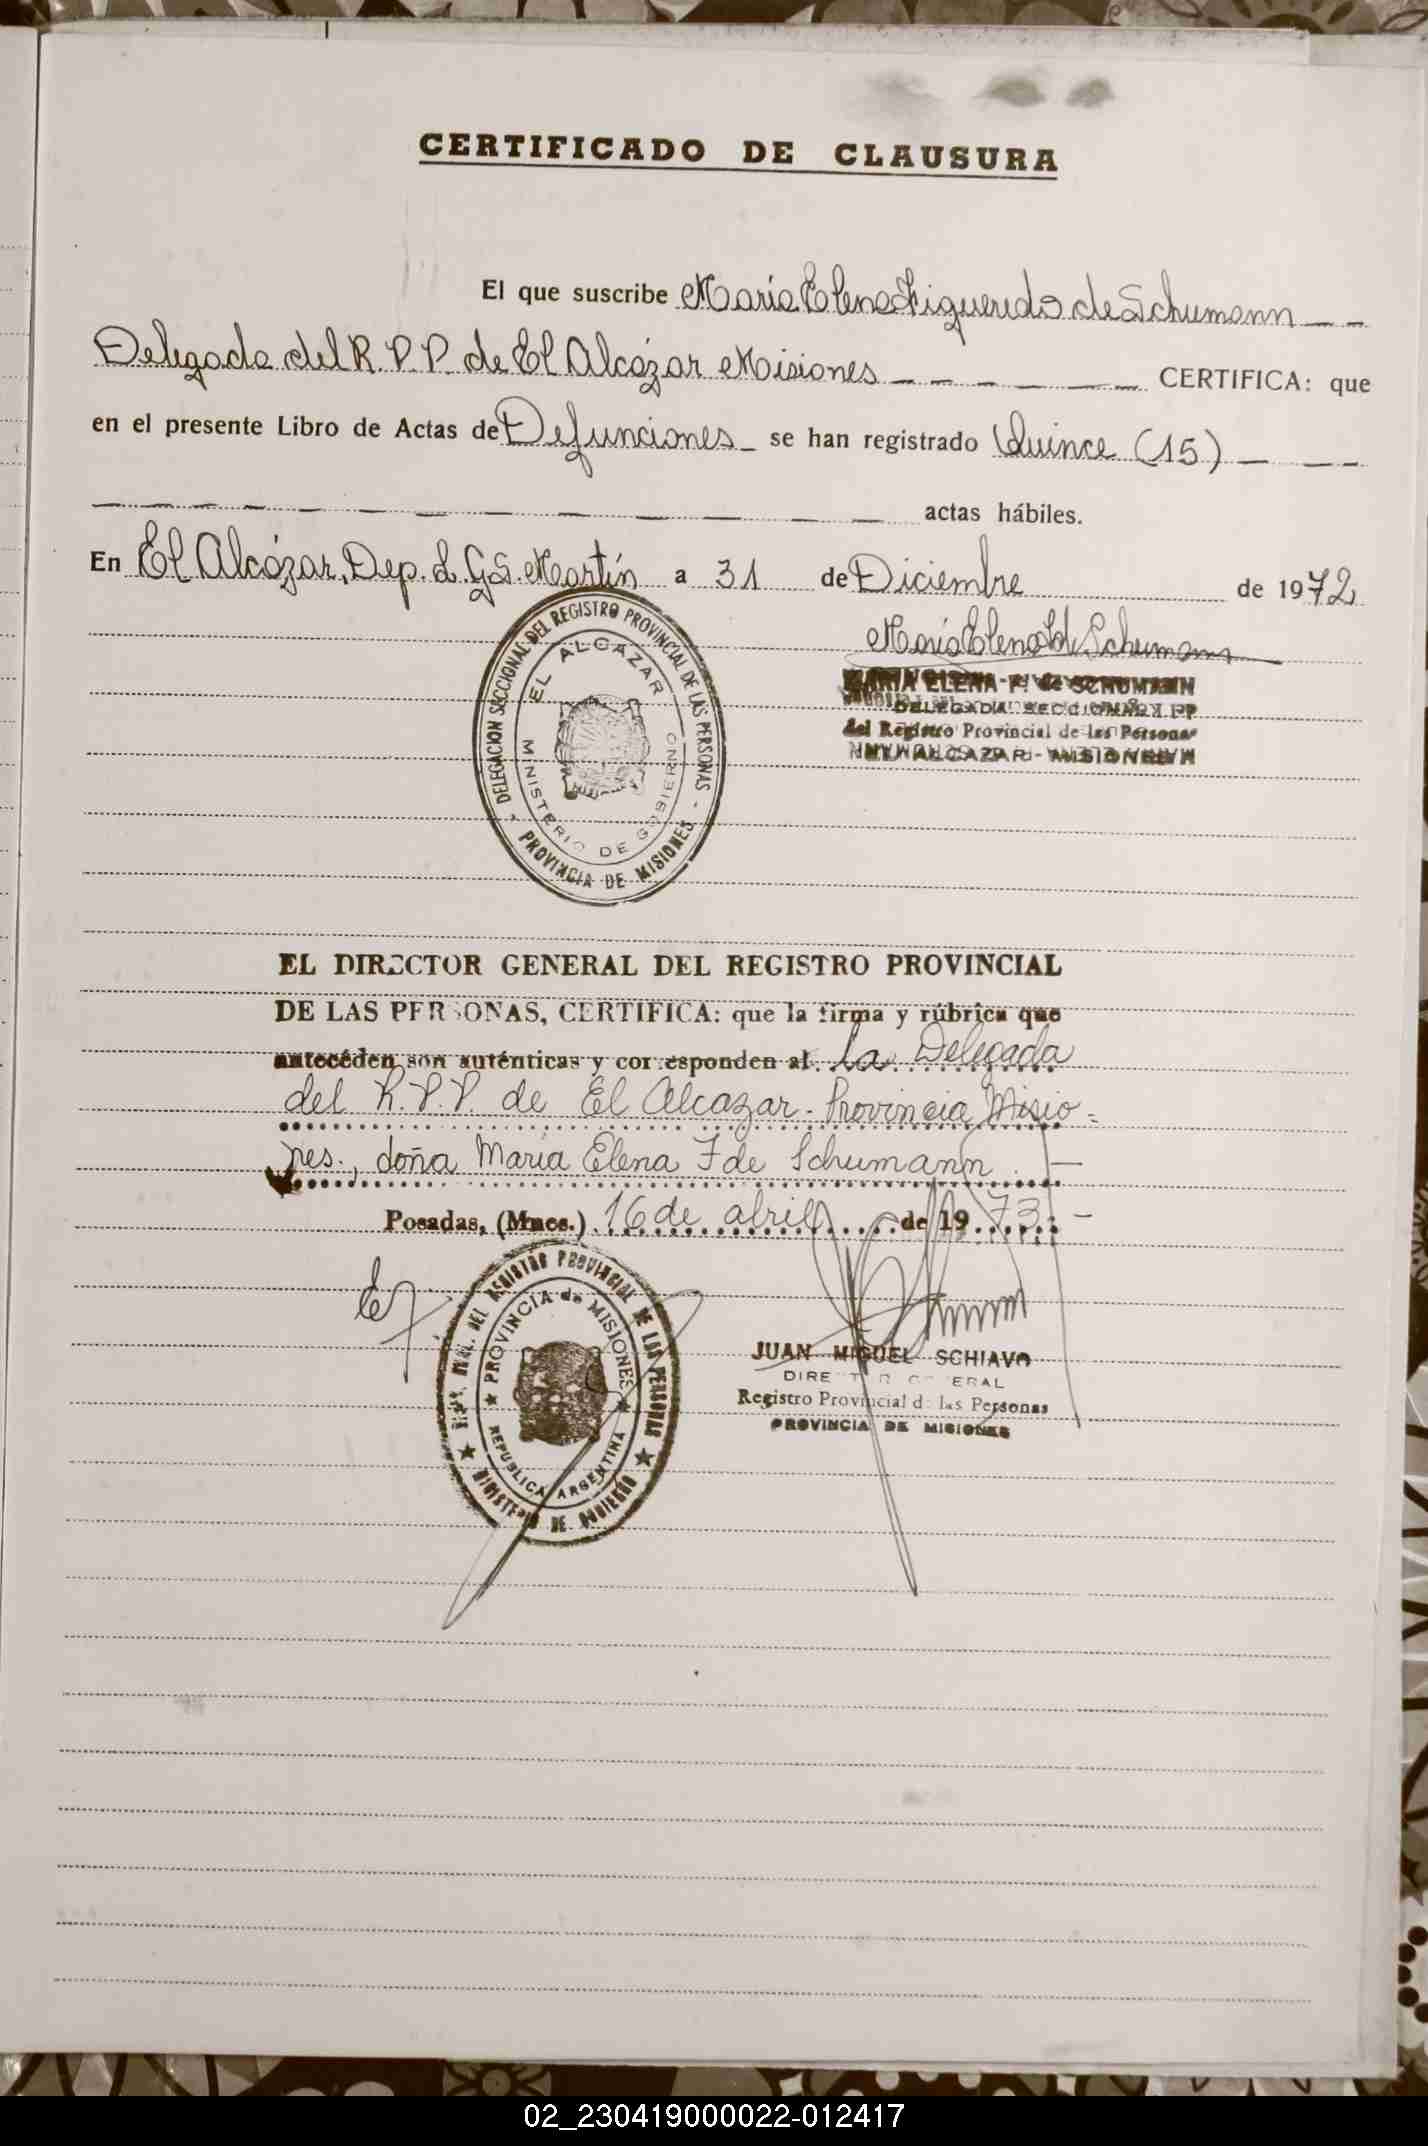 CERTIFICADO DE CLAUSURA
El que suscribe María Elena Figueredo de Schumann
Delegada del R.P.P. de El Alcázar Misiones CERTIFICA: que
en el presente Libro de Actas de Defunciones se han registrado Quince (15)
actas hábiles.
En El Alcázar, Dep. L. G. S. Martín a 31 de Diciembre de 1972
María Elena F. de Schumann
MARIA ELENA F. de SCHUMANN
DELEGADA SECCIONAL
del Registro Provincial de las Personas
EL ALCAZAR - MISIONES
DELEGACION SECCIONAL DEL REGISTRO PROVINCIAL DE LAS PERSONAS
- PROVINCIA DE MISIONES -
EL ALCAZAR
MINISTERIO DE GOBIERNO
EL DIRECTOR GENERAL DEL REGISTRO PROVINCIAL
DE LAS PERSONAS, CERTIFICA: que la firma y rúbrica que
antecéden son auténticas y corresponden al la Delegada
del R.P.P. de El Alcazar - Provincia Misio=
nes., doña María Elena F de Schumann. -
Posadas, (Mnes.) 16 de abril de 1973. -
DEL REGISTRO PROVINCIAL DE LAS PERSONAS
★ MINISTERIO DE GOBIERNO ★
★ PROVINCIA de MISIONES ★
REPUBLICA ARGENTINA
JUAN MIGUEL SCHIAVO
DIRECTOR GENERAL
Registro Provincial de las Personas
PROVINCIA DE MISIONES
02_230419000022-012417